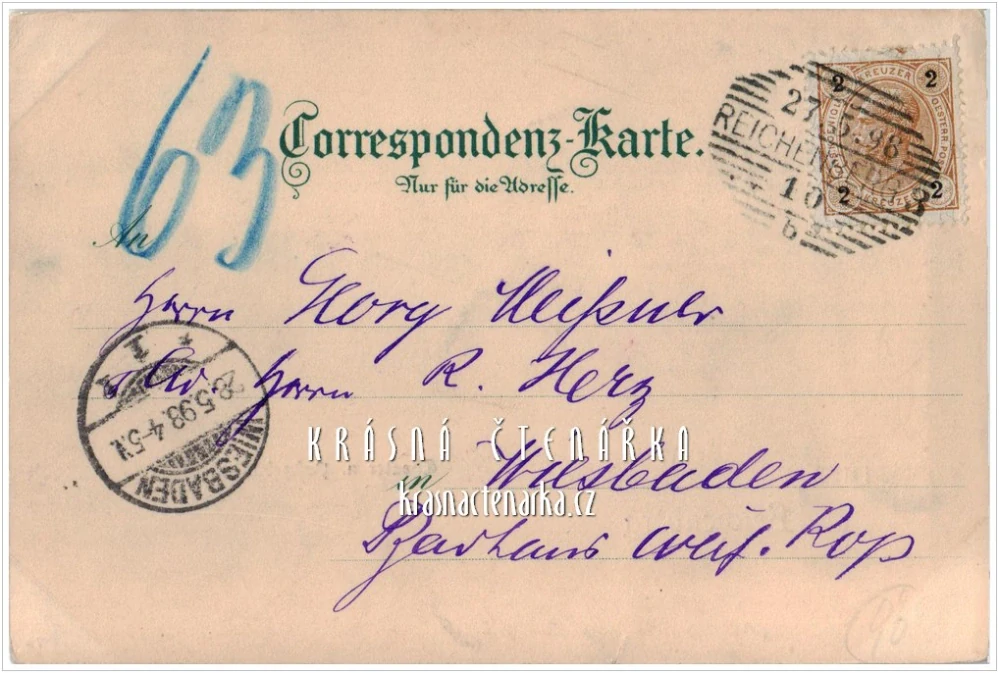 63
Correspondenz-Karte.
Nur für die Adresse.
2 KREUZER 2
2 2
27.5.98
REICHENBERG
10
b
An
Herrn Georg Meißner
Ad. Herrn R. Herz
KRÁSNÁ ČTENÁŘKA
in Wiesbaden
krasnactenarka.cz
Badhaus
WIESBADEN
28.5.98. 4-5N.
* 1
90